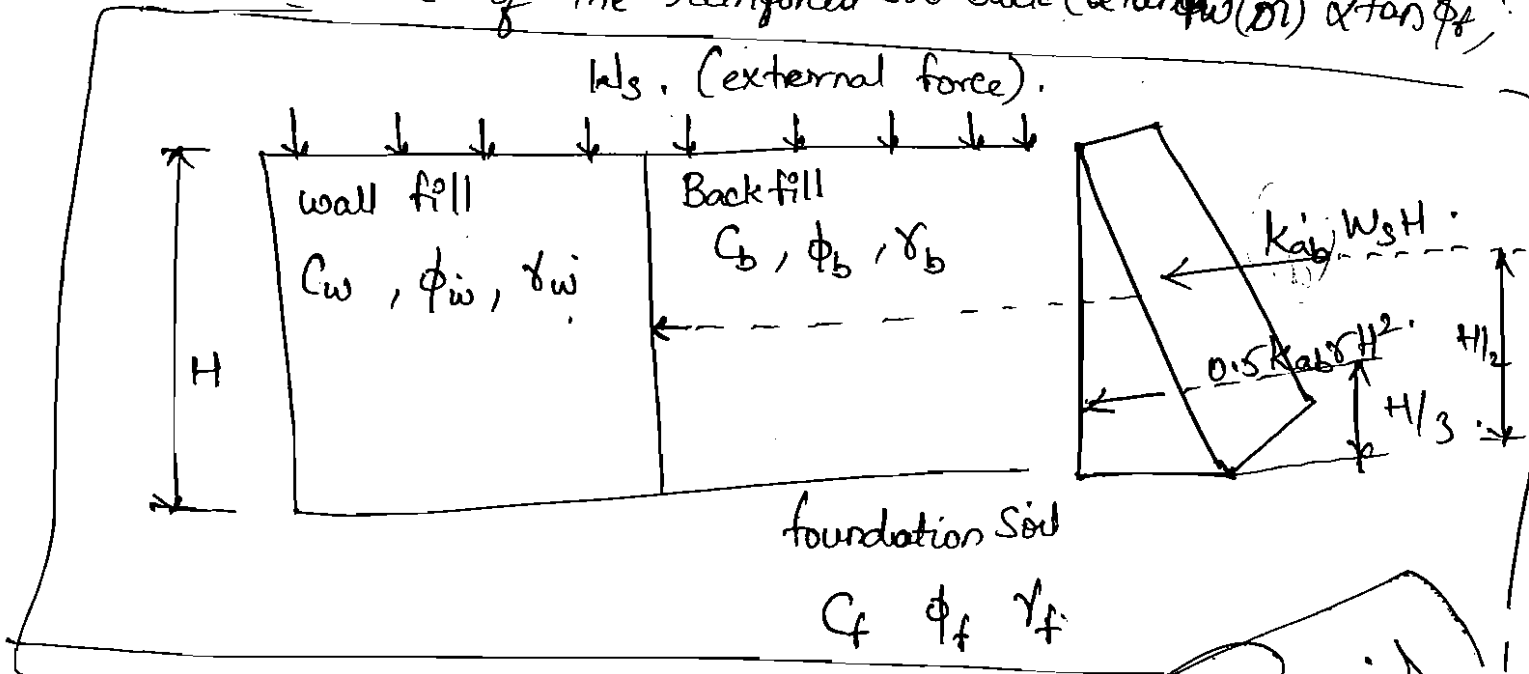 of the reinforced soil back (or) α tan φf,
Ws. (external force).
wall fill
Backfill
Cw, φw, γw
Cb, φb, γb
Kab WsH
H
0.5KabγH².
H/2
H/3
foundation Soil
Cf φf γf